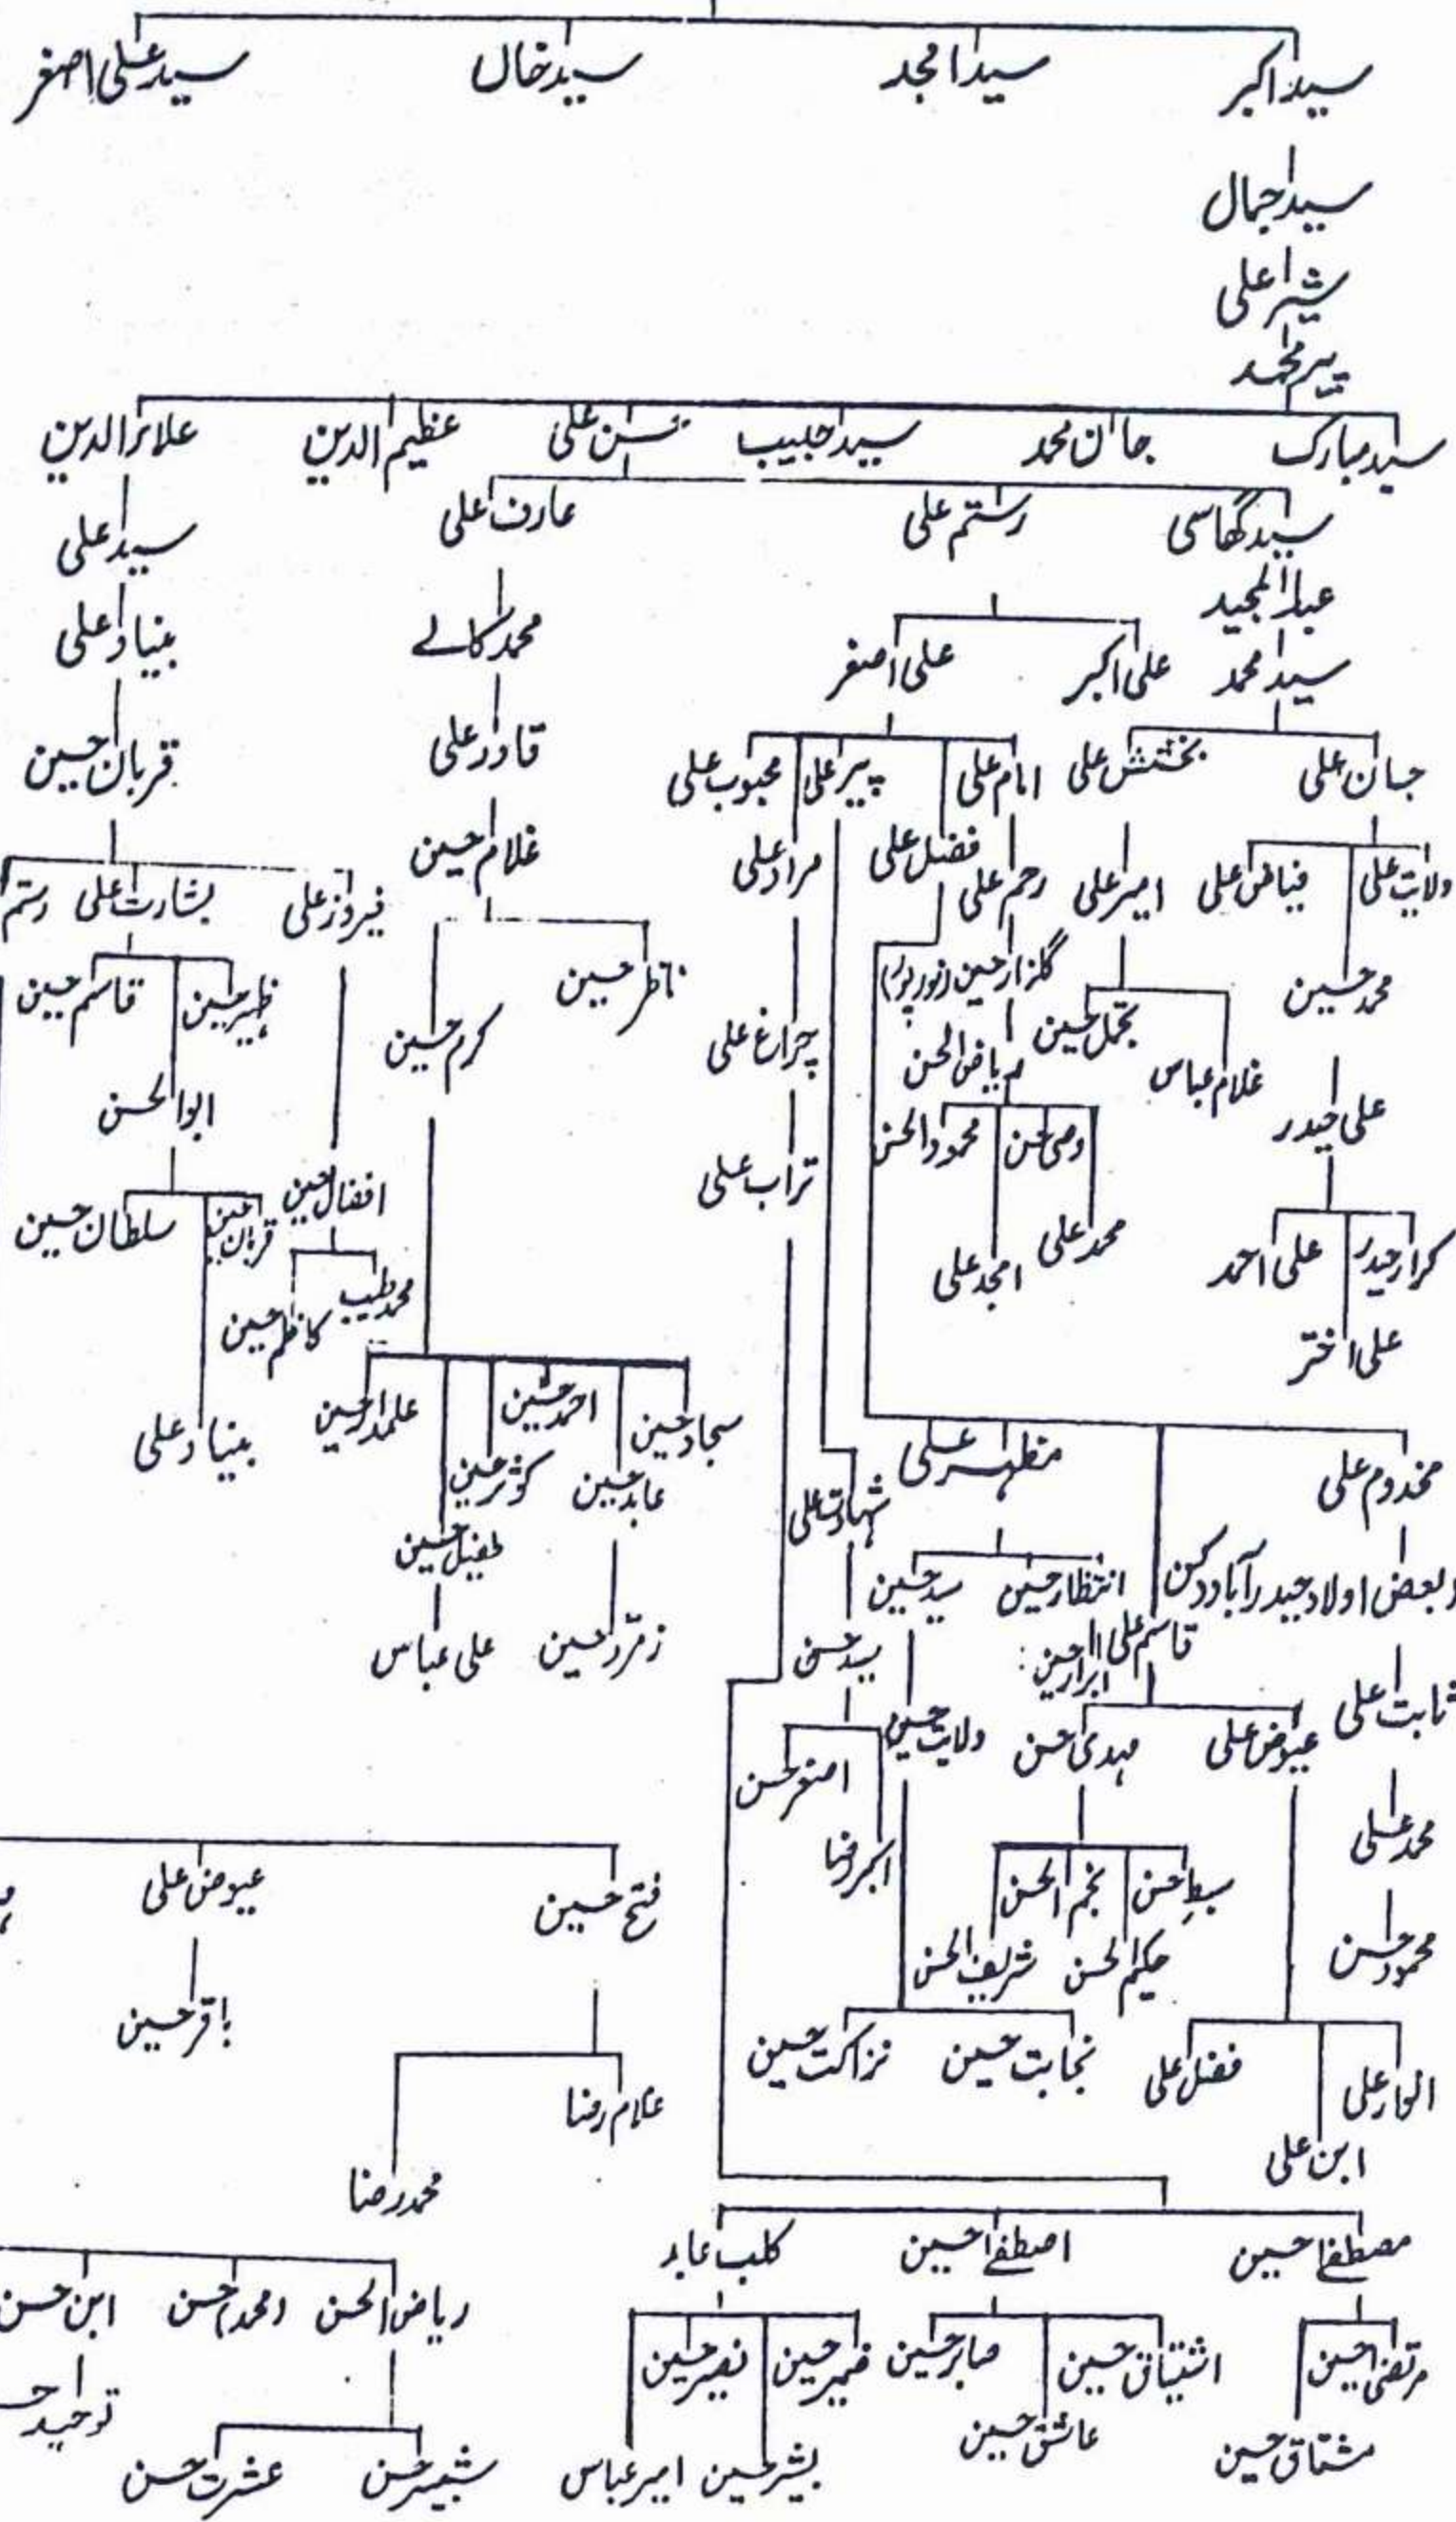 سید اکبر سید امجد سید خال سید علی اصغر
سید جمال
شیر علی
پیر محمد
سید مبارک جان محمد سید حبیب حسن علی عظیم الدین علاؤالدین
سید گھاسی رستم علی عارف علی سید علی
عبدالمجید محمد کالے بنیاد علی
سید محمد علی اکبر علی اصغر
قادر علی قربان حسین
جان علی بخشش علی امام علی پیر علی محبوب علی
غلام حسین
ولایت علی فیاض علی امیر علی رحم علی فضل علی مراد علی
فیروز علی بشارت علی رستم
محمد حسین گلزار حسین (نورپور) ناظر حسین ظہیر حسین قاسم حسین
غلام عباس تجمل حسین ریاض الحسن چراغ علی کرم حسین
علی حیدر وصی حسن محمود الحسن ابوالحسن
تراب علی
کرار حیدر علی احمد محمد علی امجد علی
افضال حسین قربان حسین سلطان حسین
علی اختر محمد طیب کاظم حسین
سجاد حسین احمد حسین علمدار حسین بنیاد علی
مخدوم علی مظہر علی شہادت علی عابد حسین کوثر حسین
طفیل حسین
وبعض اولاد حیدرآباد دکن انتظار حسین سید حسین
قاسم علی ابرار حسین سید حسن زمرد حسین علی عباس
ثابت علی عیوض علی مہدی حسن ولایت حسین اصغر حسن
محمد علی اکبر رضا
سبط حسن نجم الحسن فتح حسین عیوض علی
محمود حسن حکیم الحسن شریف الحسن
باقر حسین
انوار علی فضل علی نجابت حسین نزاکت حسین غلام رضا
ابن علی محمد رضا
مصطفےٰ حسین اصطفےٰ حسین کلب عابد
ریاض الحسن محمد حسن ابن حسن
مرتضیٰ حسین اشتیاق حسین صابر حسین ضمیر حسین نصیر حسین
توحید
مشتاق حسین عاشق حسین بشیر حسین امیر عباس شبیر حسن عشرت حسن